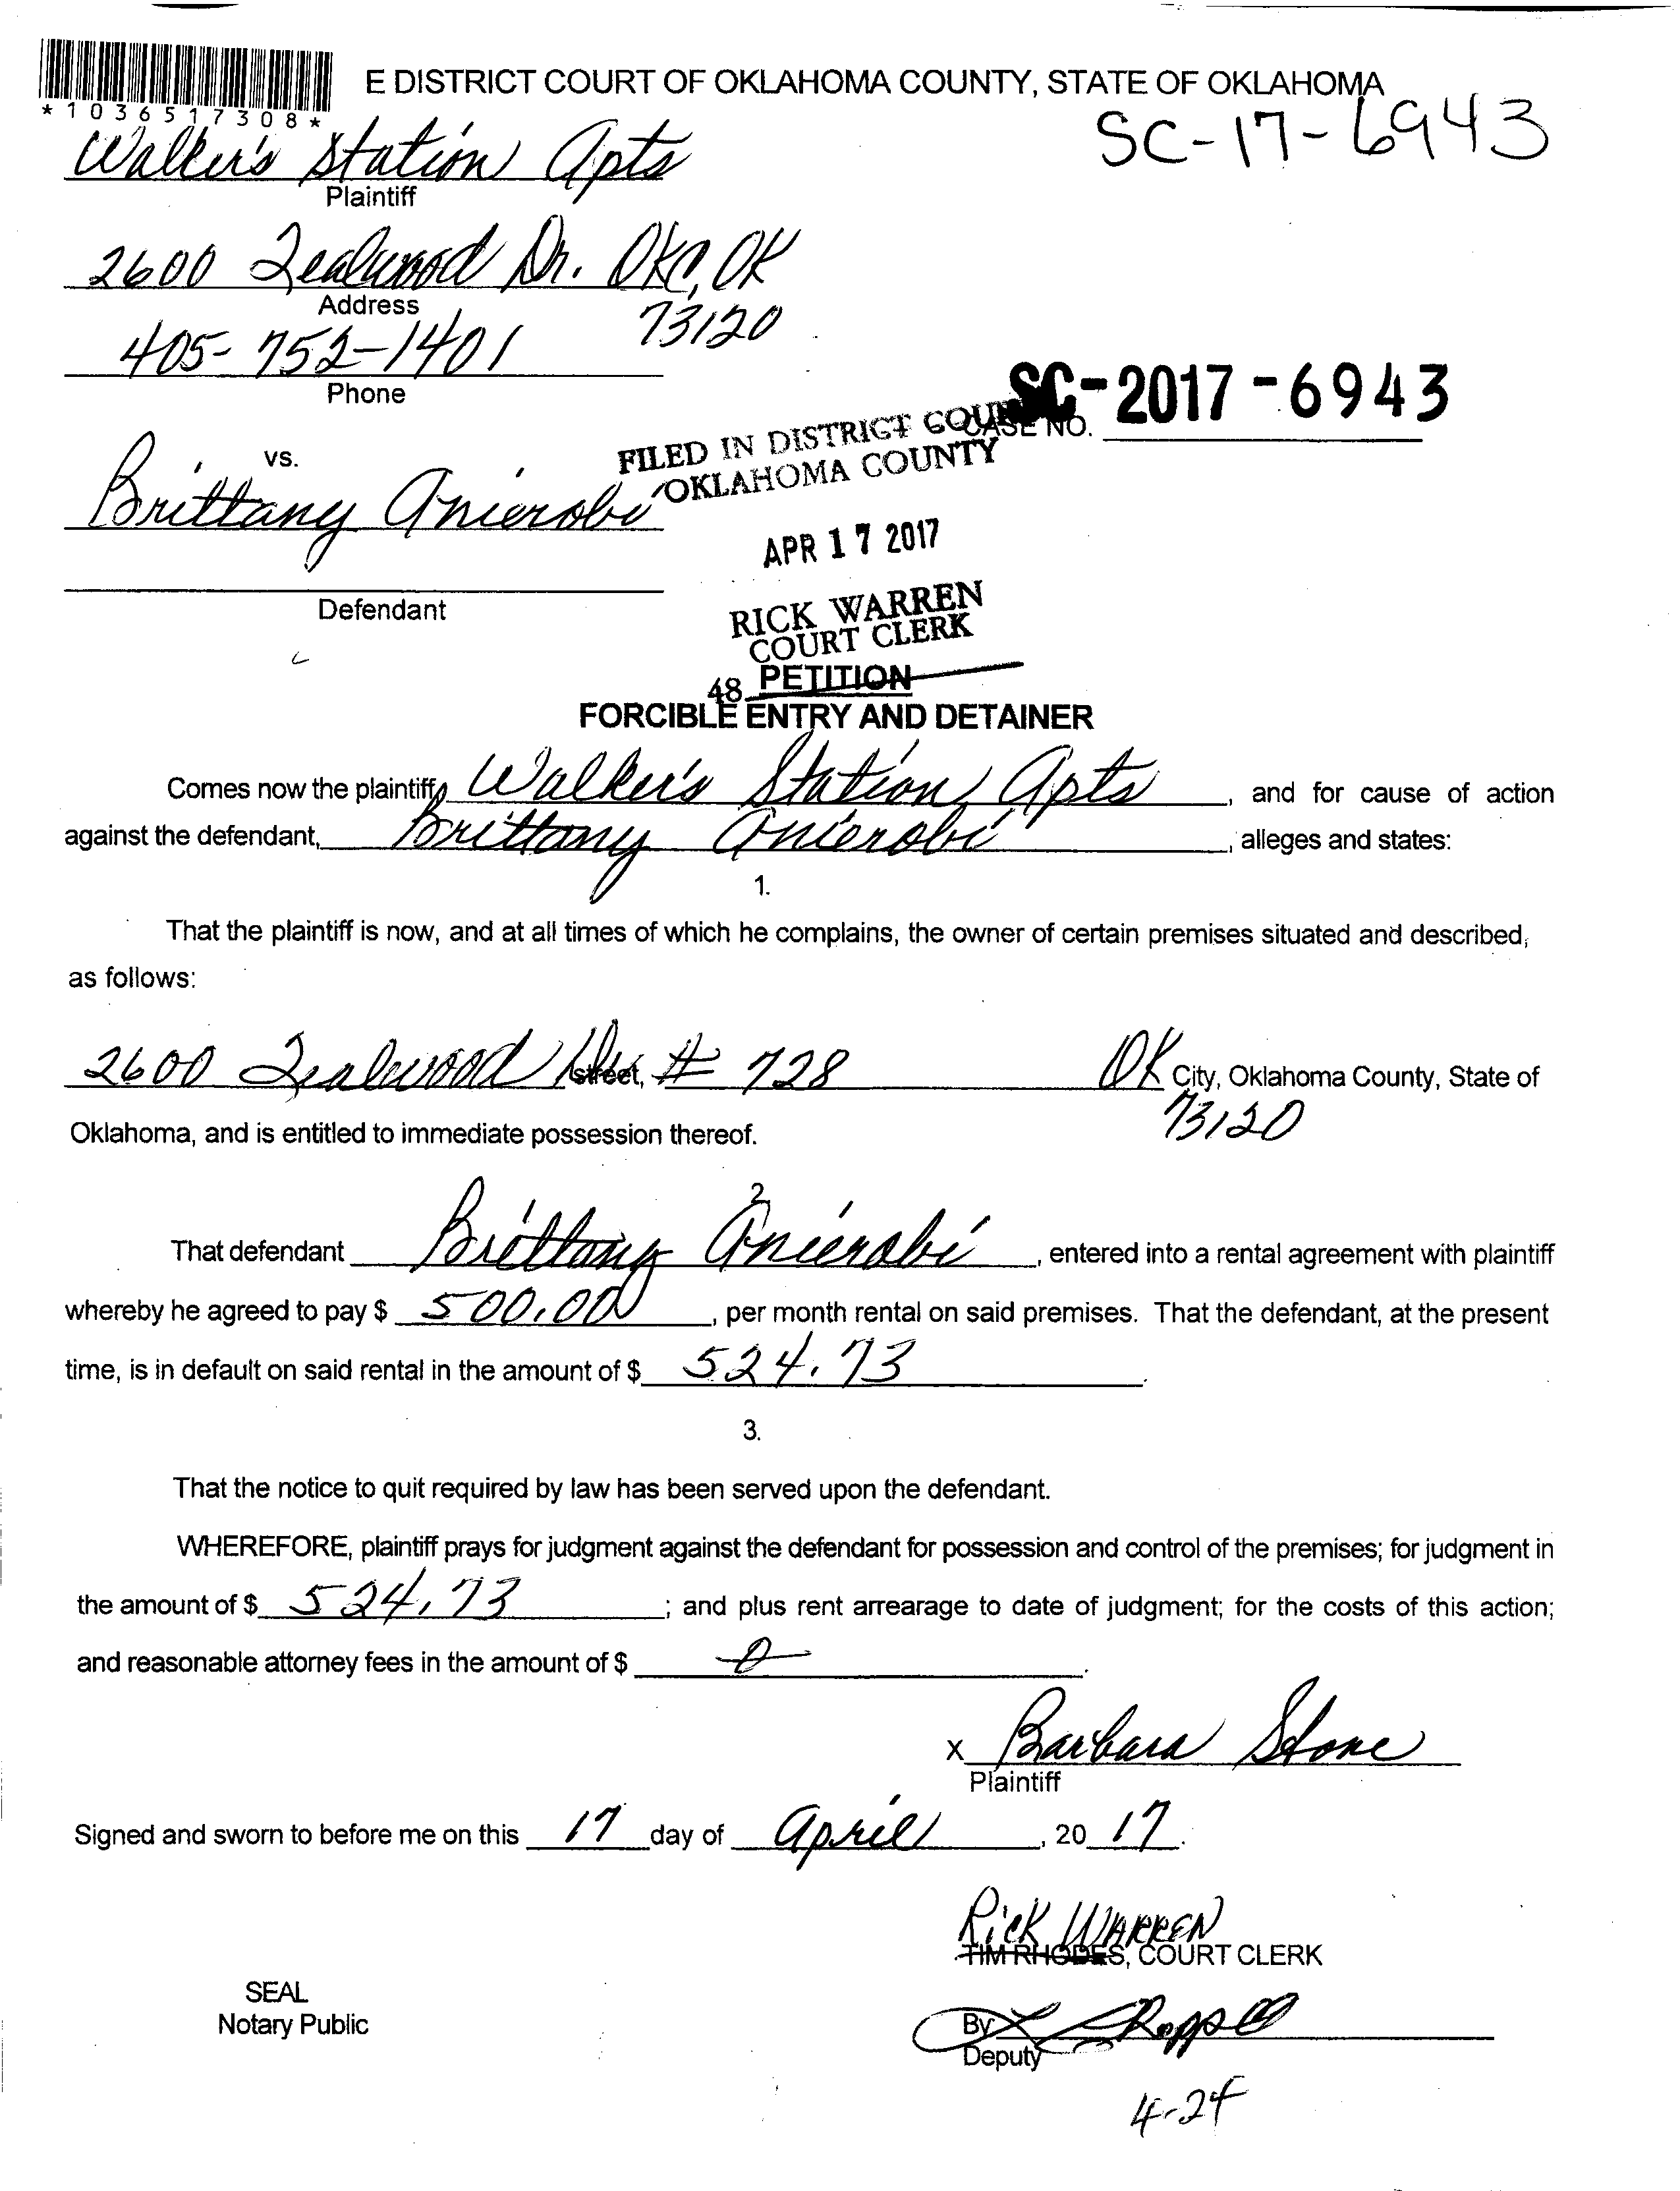 E DISTRICT COURT OF OKLAHOMA COUNTY, STATE OF OKLAHOMA
*1036517308*
SC-17-6943
Walker's Station Apts
Plaintiff
2600 Tealwood Dr. OKC, OK
Address
73120
405-752-1401
Phone
SC-2017-6943
CASE NO.
FILED IN DISTRICT COURT
OKLAHOMA COUNTY
vs.
Brittany Anierobi
APR 17 2017
Defendant
RICK WARREN
COURT CLERK
48 PETITION
FORCIBLE ENTRY AND DETAINER
Comes now the plaintiff, Walker's Station Apts, and for cause of action
against the defendant, Brittany Anierobi, alleges and states:
1.
That the plaintiff is now, and at all times of which he complains, the owner of certain premises situated and described,
as follows:
2600 Tealwood Dr street, # 728 OK City, Oklahoma County, State of
73120
Oklahoma, and is entitled to immediate possession thereof.
2.
That defendant Brittany Anierobi, entered into a rental agreement with plaintiff
whereby he agreed to pay $ 500.00, per month rental on said premises. That the defendant, at the present
time, is in default on said rental in the amount of $ 524.73.
3.
That the notice to quit required by law has been served upon the defendant.
WHEREFORE, plaintiff prays for judgment against the defendant for possession and control of the premises; for judgment in
the amount of $ 524.73; and plus rent arrearage to date of judgment; for the costs of this action;
and reasonable attorney fees in the amount of $ 0.
x Barbara Stone
Plaintiff
Signed and sworn to before me on this 17 day of April, 2017.
Rick WARREN
TIM RHODES, COURT CLERK
SEAL
Notary Public
By
Deputy
4-24